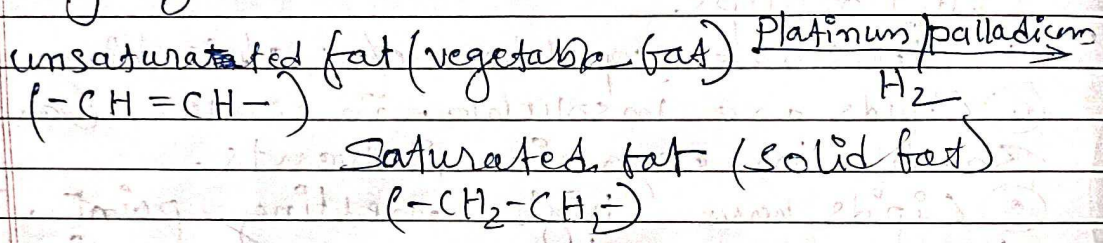 unsaturated fat (vegetable fat) Platinum/palladium
(-CH=CH-) H2
Saturated fat (solid fat)
(-CH2-CH2-)